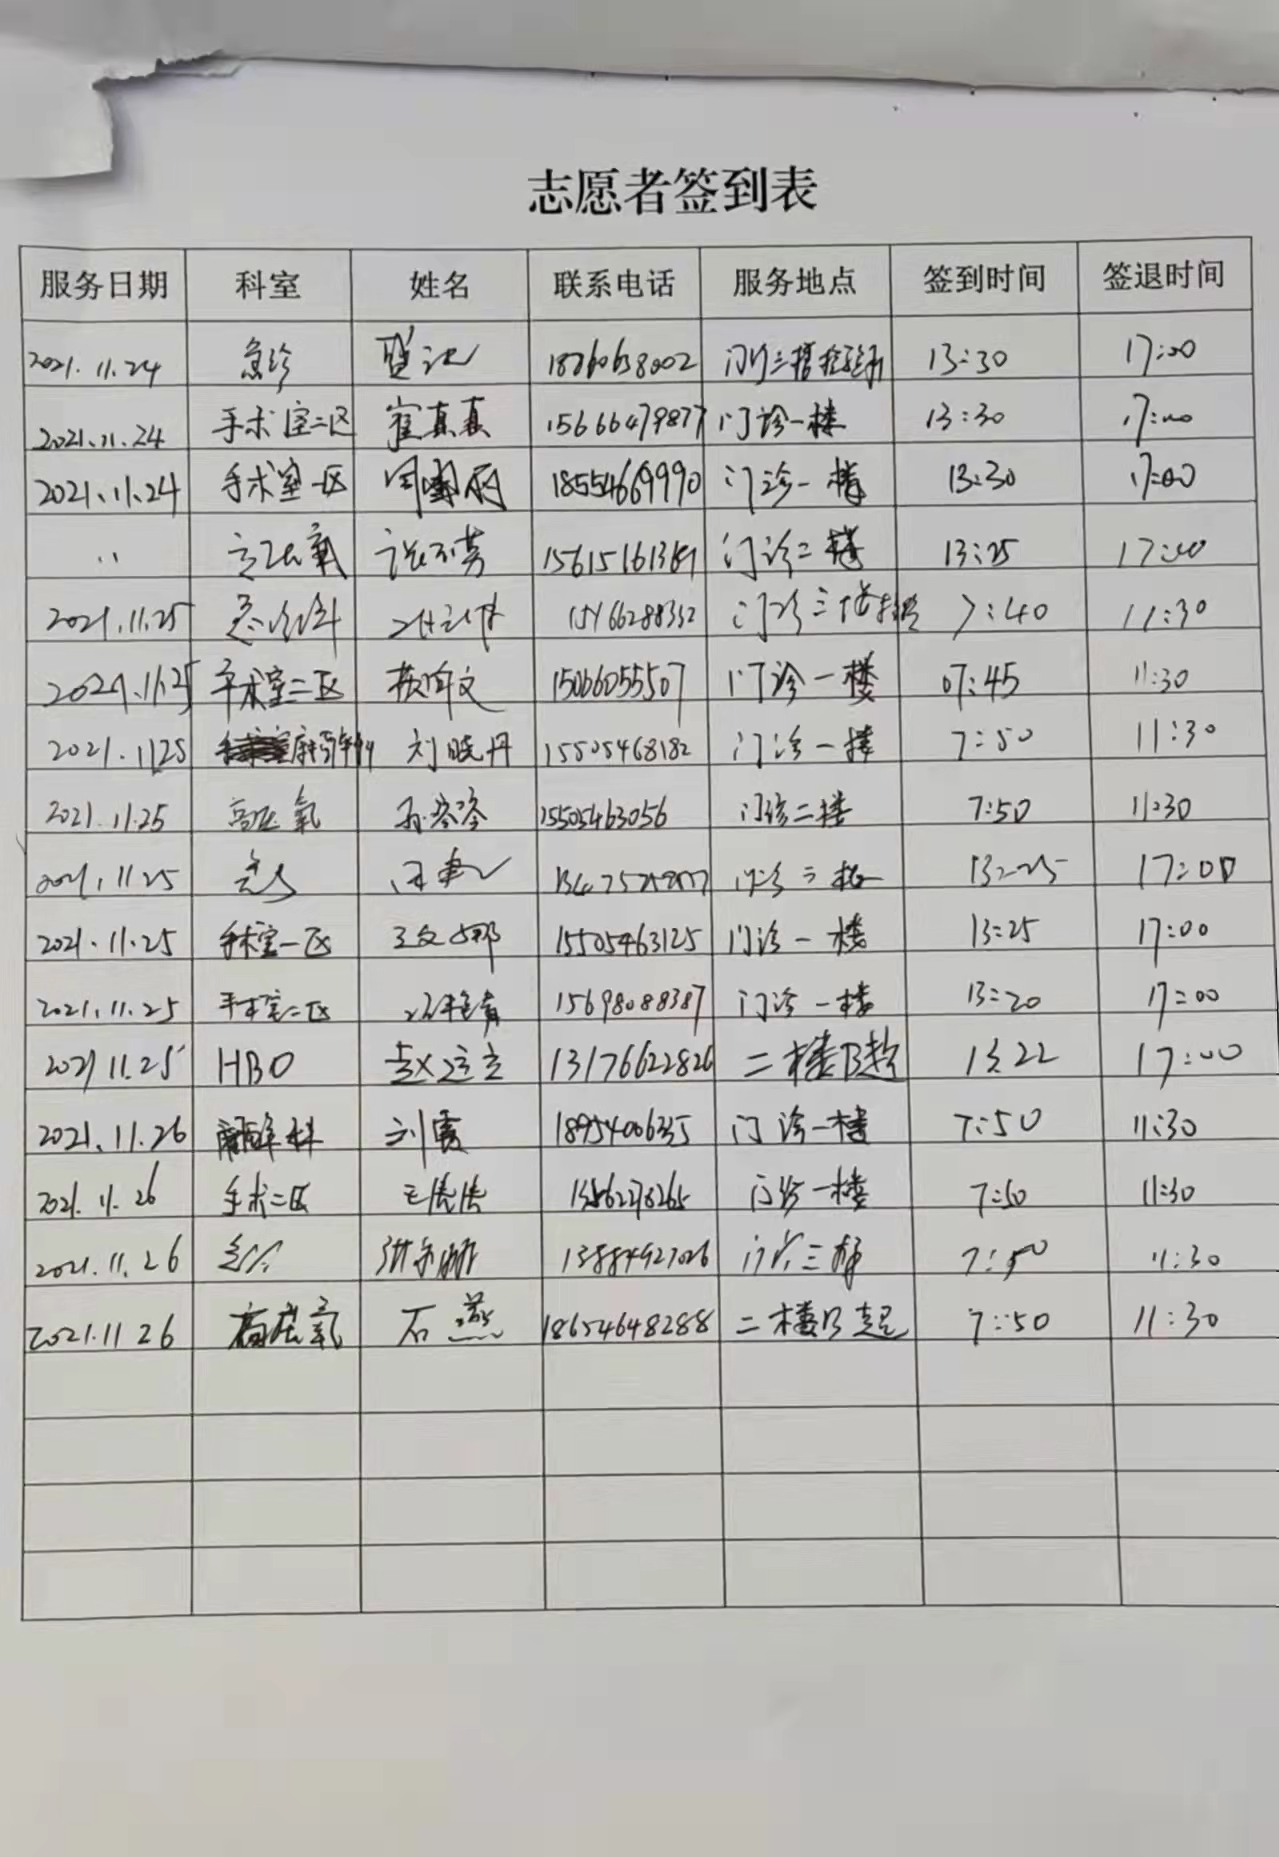 志愿者签到表
服务日期 科室 姓名 联系电话 服务地点 签到时间 签退时间
2021.11.24 急诊 18760658002 门诊三楼 13:30 17:00
2021.11.24 手术室二区 崔真真 15666479877 门诊一楼 13:30 17:00
2021.11.24 手术室一区 周圆丽 18554669990 门诊一楼 13:30 17:00
·· 高压氧 门诊二楼 13:25 17:00
2021.11.25 急诊科 15166288332 门诊三楼 7:40 11:30
2021.11.25 手术室二区 15066055507 门诊一楼 07:45 11:30
2021.11 25 刘晓丹 15505468182 门诊一楼 7:50 11:30
2021.11.25 高压氧 孙岑岑 15505463056 门诊二楼 7:50 11:30
2021.11.25 门诊三楼 13:25 17:00
2021.11.25 手术室一区 王文娜 15505463125 门诊一楼 13:25 17:00
2021.11.25 手术室二区 15698088387 门诊一楼 13:20 17:00
2021 11.25 HBO 13176622826 二楼B超 13:22 17:00
2021.11.26 麻醉科 刘霞 门诊一楼 7:50 11:30
2021.11.26 手术二区 门诊一楼 7:50 11:30
2021.11.26 13884927026 门诊三楼 7:50 11:30
2021.11 26 高压氧 石燕 18654648288 二楼B超 7:50 11:30